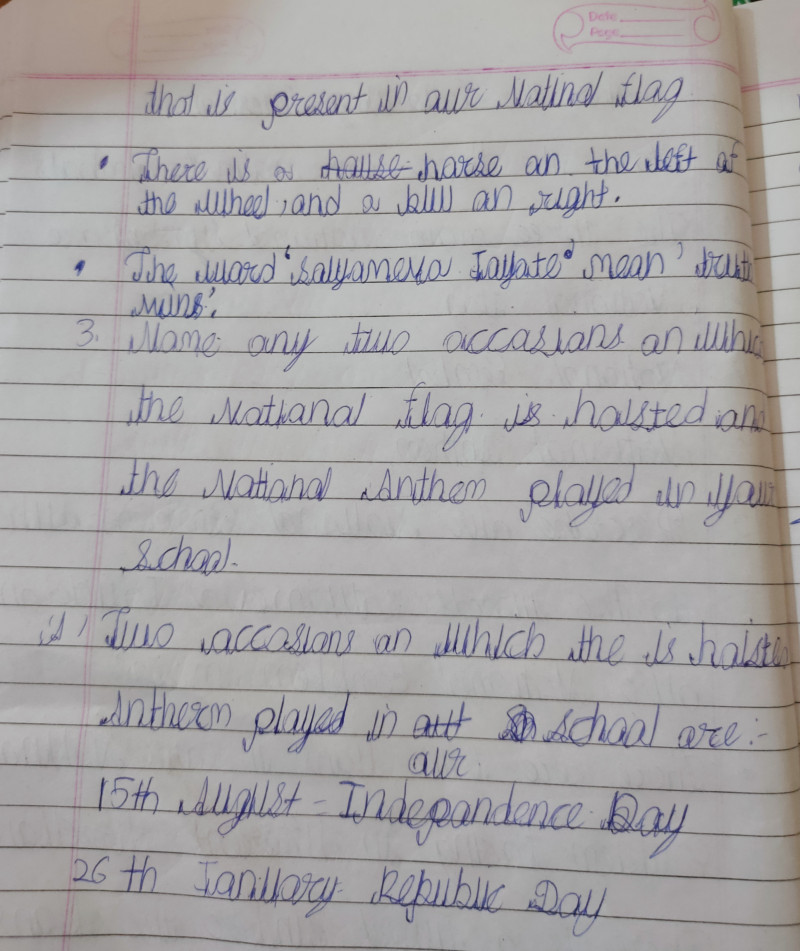 Date
Page
that is present in our Natinal flag
• There is a hause horse on the left of
the wheel, and a bull on right.
• The word 'Satyameva Jayate' mean 'truth
wins'.
3. Name any two occasions on which
the National flag is hoisted and
the National Anthem played in your
school.
Two occasions on which the is hoisted
Antherm played in school are:-
our
15th August - Independance Day
26 th January Republic Day